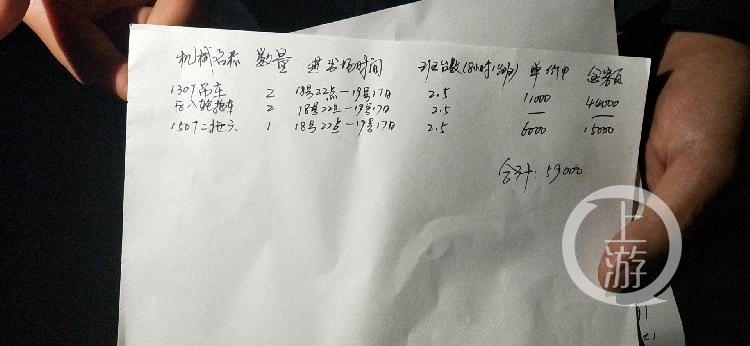 机械名称 数量 进出场时间 班台数(8小时/台班) 单价 金额
130T吊车 2 18号22点—19号17点 2.5 11000 44000
后八轮拖车 2 18号22点—19号17点 2.5
150T 1 18号22点—19号17点 2.5 6000 15000
合计: 59000
上游